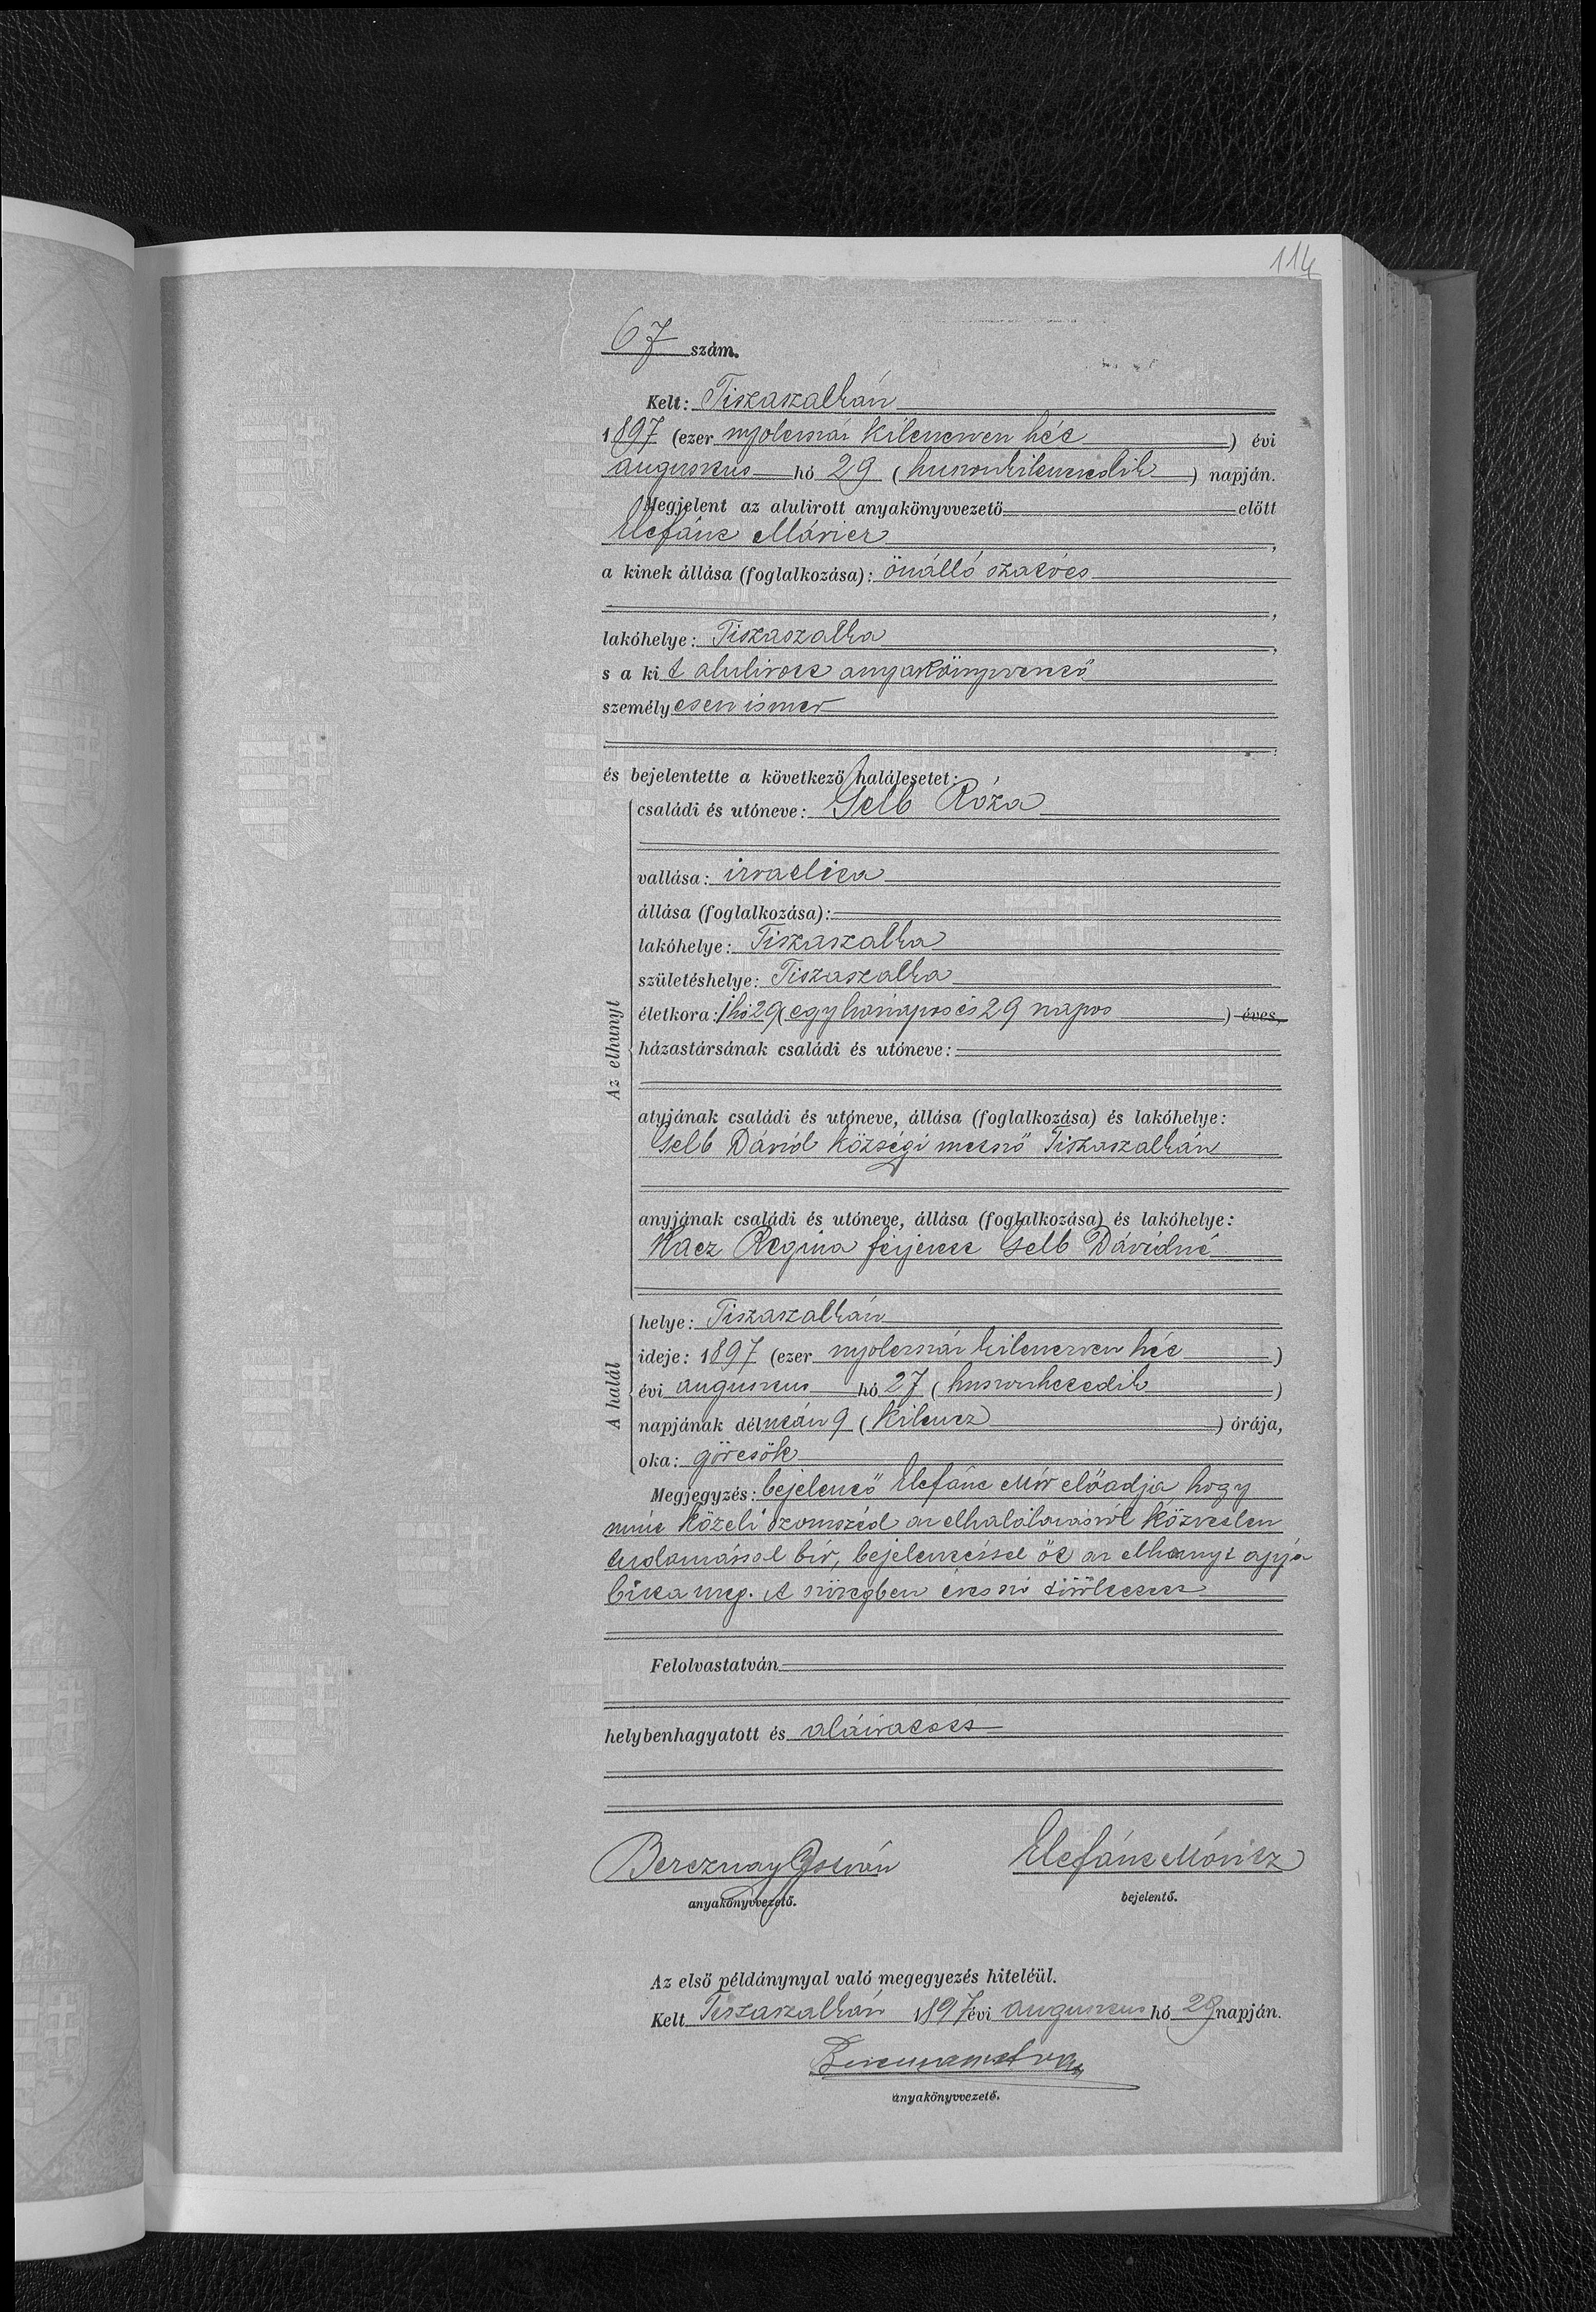 114
67 szám.
Kelt: Tiszaszalkán
1897 (ezer nyolcszáz kilenczven hét) évi
augusztus hó 29 (huszonkilenczedik) napján.
Megjelent az alulirott anyakönyvvezető előtt
Elefánt Móricz,
a kinek állása (foglalkozása): önálló szatócs
,
lakóhelye: Tiszaszalka,
s a kit alulirott anyakönyvvezető
személyesen ismer
.
és bejelentette a következő halálesetet:
Az elhunyt
családi és utóneve: Gelb Róza
vallása: izraelita
állása (foglalkozása):
lakóhelye: Tiszaszalka
születéshelye: Tiszaszalka
életkora: 1 hó 29 (egy hónapos és 29 napos) éves,
házastársának családi és utóneve:
atyjának családi és utóneve, állása (foglalkozása) és lakóhelye:
Gelb Dávid községi metsző Tiszaszalkán
anyjának családi és utóneve, állása (foglalkozása) és lakóhelye:
Regina férjezett Gelb Dávidné
A halál
helye: Tiszaszalkán
ideje: 1897 (ezer nyolcszáz kilenczven hét)
évi augusztus hó 27 (huszonhetedik)
napjának délután 9 (kilencz) órája,
oka: görcsök
Megjegyzés: bejelentő Elefánt Mór előadja hogy
mint közeli szomszéd az elhalálozásról közvetlen
tudomással bír, bejelentéssel őt az elhunyt apja
bízta meg. A szövegben éves szó töröltetett
Felolvastatván
helybenhagyatott és aláiratott
Bereznay István
anyakönyvvezető.
Elefánt Móritz
bejelentő.
Az első példánynyal való megegyezés hiteléül.
Kelt Tiszaszalkán 1897 évi augusztus hó 29 napján.
anyakönyvvezető.